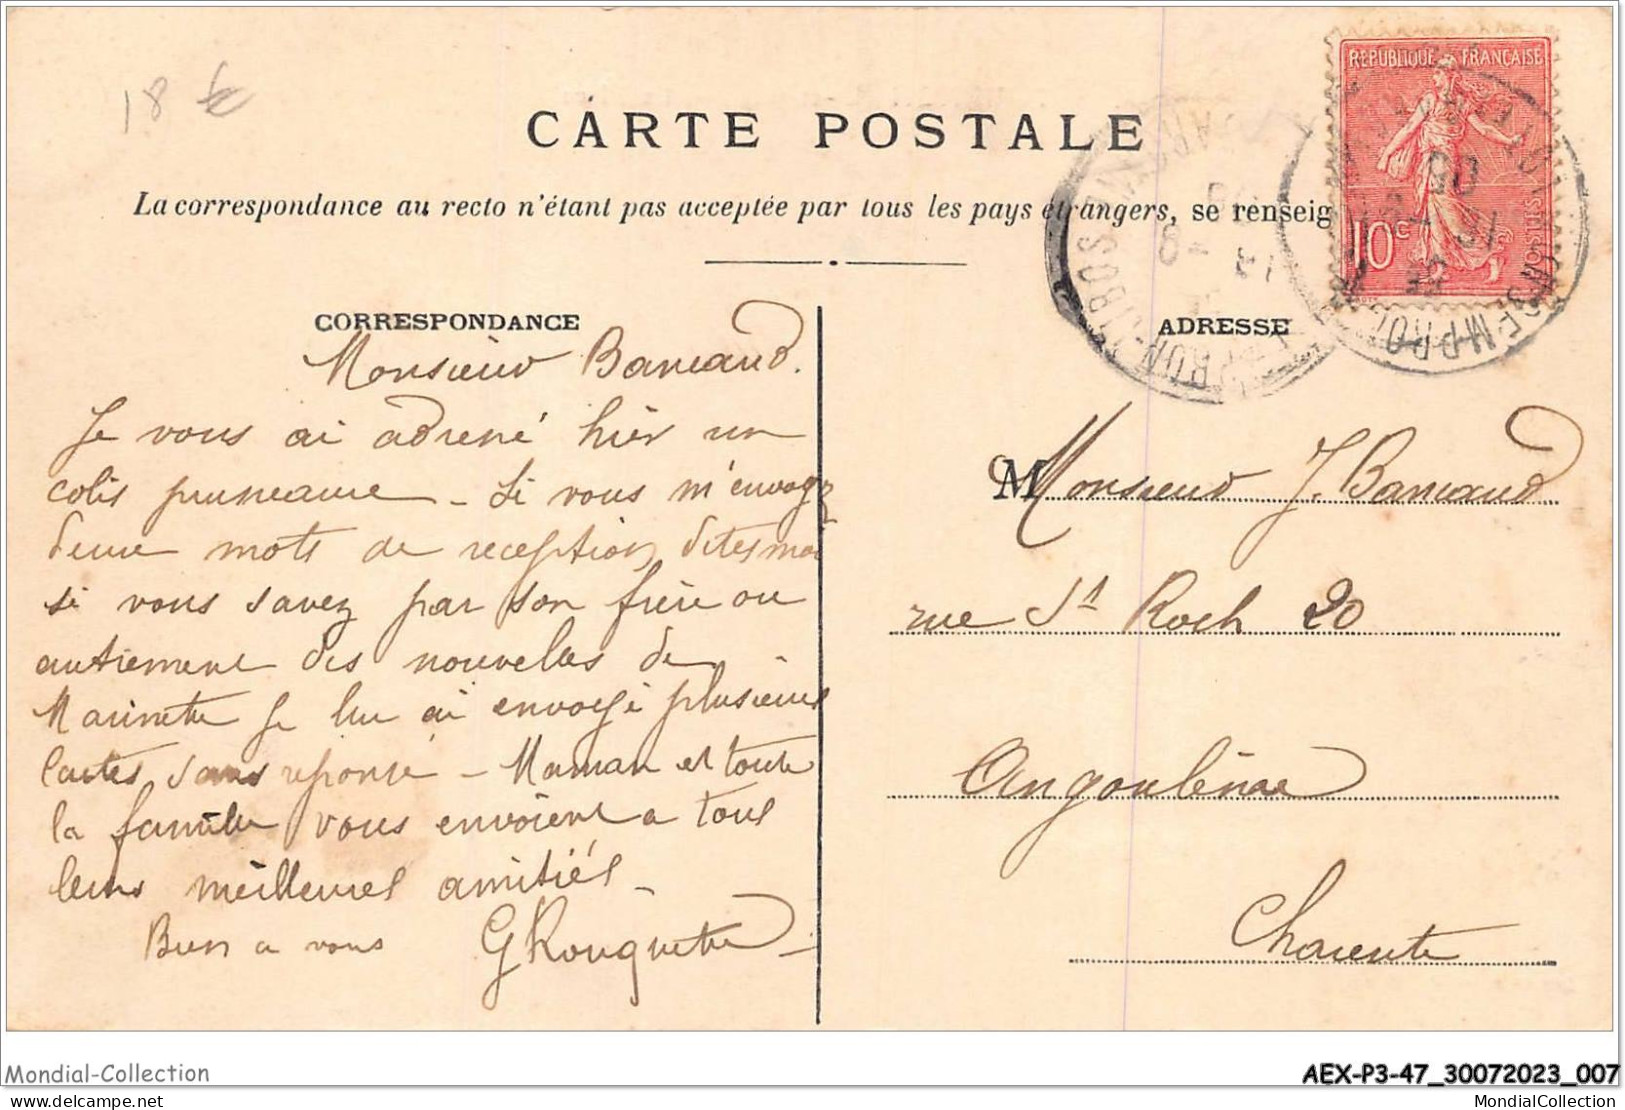 18 €
CARTE POSTALE
La correspondance au recto n'étant pas acceptée par tous les pays étrangers, se renseig
REPUBLIQUE FRANÇAISE
10c
CORRESPONDANCE
Monsieur Barraud.
Je vous ai adressé hier un
colis pruneaux - Si vous m'envoyez
deux mots de reception, dites moi
si vous savez par son frère ou
autrement des nouvelles de
Marinette je lui ai envoyé plusieurs
cartes sans reponse - Maman et toute
la famille vous envoient a tous
leurs meilleures amitiés -
Bien a vous GRouquette
ADRESSE
M
Monsieur J. Barraud
rue St Roch 20
Angoulême
Charente
Mondial-Collection
AEX-P3-47_30072023_007
delcampe.net
MondialCollection